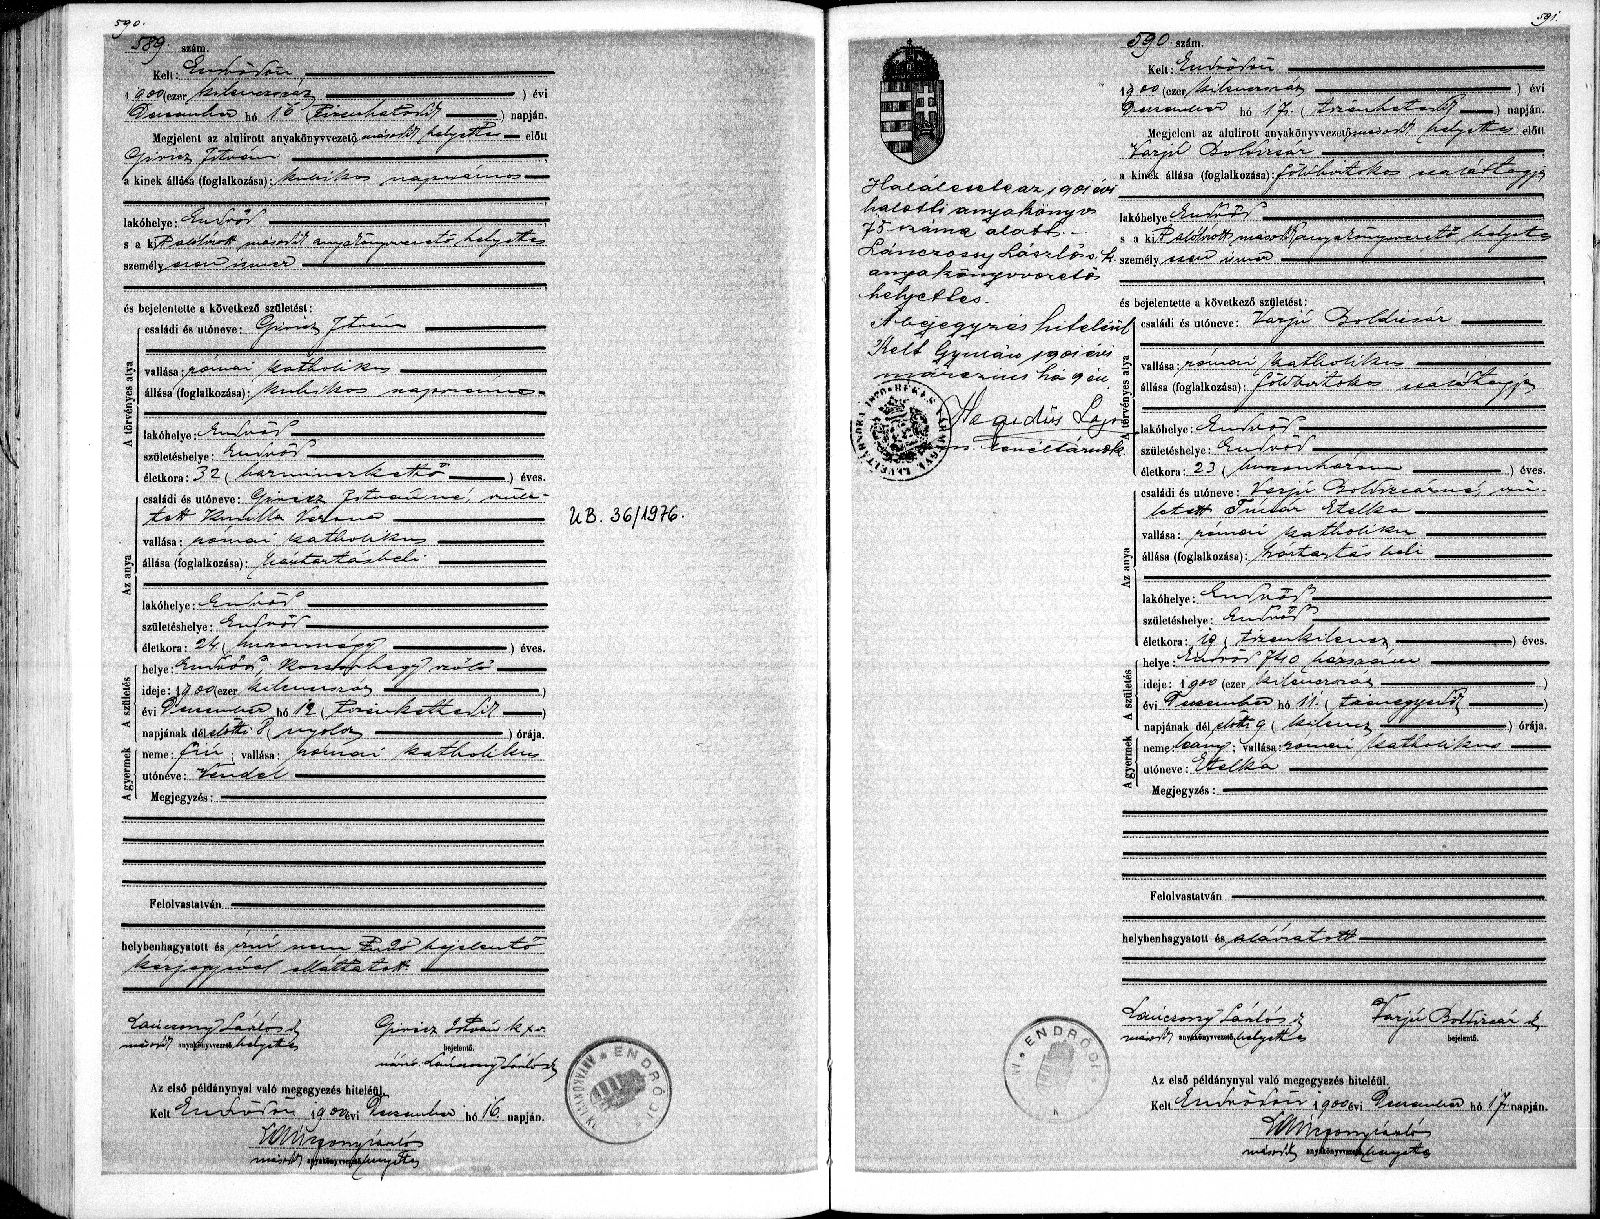 590.
589. szám.
Kelt: Endrődön
1900 (ezer kilenczszáz ) évi
December hó 16 (tizenhatodik ) napján.
Megjelent az alulirott anyakönyvvezető másodh helyettes előtt
Giricz István
a kinek állása (foglalkozása): kubikos napszámos
lakóhelye: Endrőd
s a kit alólirott másodh anyakönyvvezető helyettes
személyesen ismer
és bejelentette a következő születést:
A törvényes atya
családi és utóneve: Giricz István
vallása: római katholikus
állása (foglalkozása): kubikos napszámos
lakóhelye: Endrőd
születéshelye: Endrőd
életkora: 32 (harminczkettő ) éves.
Az anya
családi és utóneve: Giricz Istvánné, szüle-
tett Verona
vallása: római katholikus
állása (foglalkozása): háztartásbeli
lakóhelye: Endrőd
születéshelye: Endrőd
életkora: 24 (huszonnégy ) éves.
A születés
helye: Endrőd, szőlő
ideje: 1900 (ezer kilenczszáz )
évi December hó 12 (tizenkettedik )
napjának dél előtti 8 (nyolcz ) órája.
A gyermek
neme: fiu; vallása: római katholikus
utóneve: Vendel
Megjegyzés:
Felolvastatván
helybenhagyatott és irni nem tudó bejelentő
kézjegyével elláttatott
Lánczony László
másodh anyakönyvvezető helyettes
Giricz István k x v.
bejelentő.
Lánczony László
ENDRŐD
Az első példánynyal való megegyezés hiteléül.
Kelt Endrődön 1900 évi December hó 16. napján.
Lánczony László
másodh anyakönyvvezető helyettes
UB. 36/1976.
591.
Halálesete az 1901 évi
halotti anyakönyv
75 száma alatt.
Lánczony László s. k.
anyakönyvvezető
helyettes.
A bejegyzés hiteléül
Kelt Gyulán 1901 évi
márczius hó 9 én
Hegedűs Lajos
BÉKÉS VÁRMEGYE LEVÉLTÁRNOKA
590 szám.
Kelt: Endrődön
1900 (ezer kilenczszáz ) évi
December hó 17. (tizenhetedik ) napján.
Megjelent az alulirott anyakönyvvezető másodh helyettes előtt
Varjú Boldizsár
a kinek állása (foglalkozása): földbirtokos családtagja
lakóhelye Endrőd
s a kit alólirott másodh anyakönyvvezető helyettes
személyesen ismer
és bejelentette a következő születést:
A törvényes atya
családi és utóneve: Varjú Boldizsár
vallása: római katholikus
állása (foglalkozása): földbirtokos családtagja
lakóhelye: Endrőd
születéshelye: Endrőd
életkora: 23 (huszonhárom ) éves.
Az anya
családi és utóneve: Varjú Boldizsárné, szü-
letett Timár Etelka
vallása: római katholikus
állása (foglalkozása): háztartásbeli
lakóhelye: Endrőd
születéshelye: Endrőd
életkora: 19 (tizenkilencz ) éves.
A születés
helye: Endrőd 740 házszám
ideje: 1900 (ezer kilenczszáz )
évi December hó 11. (tizenegyedik )
napjának dél előtti 9 (kilencz ) órája.
A gyermek
neme: leány; vallása: római katholikus
utóneve: Etelka
Megjegyzés:
Felolvastatván
helybenhagyatott és aláiratott
Lánczony László
másodh anyakönyvvezető helyettes
Varjú Boldizsár
bejelentő.
ENDRŐD
Az első példánynyal való megegyezés hiteléül.
Kelt Endrődön 1900 évi December hó 17. napján.
Lánczony László
másodh anyakönyvvezető helyettes